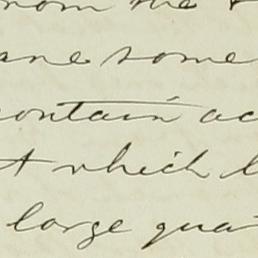 from the
some
contain ac
t which l
large qua